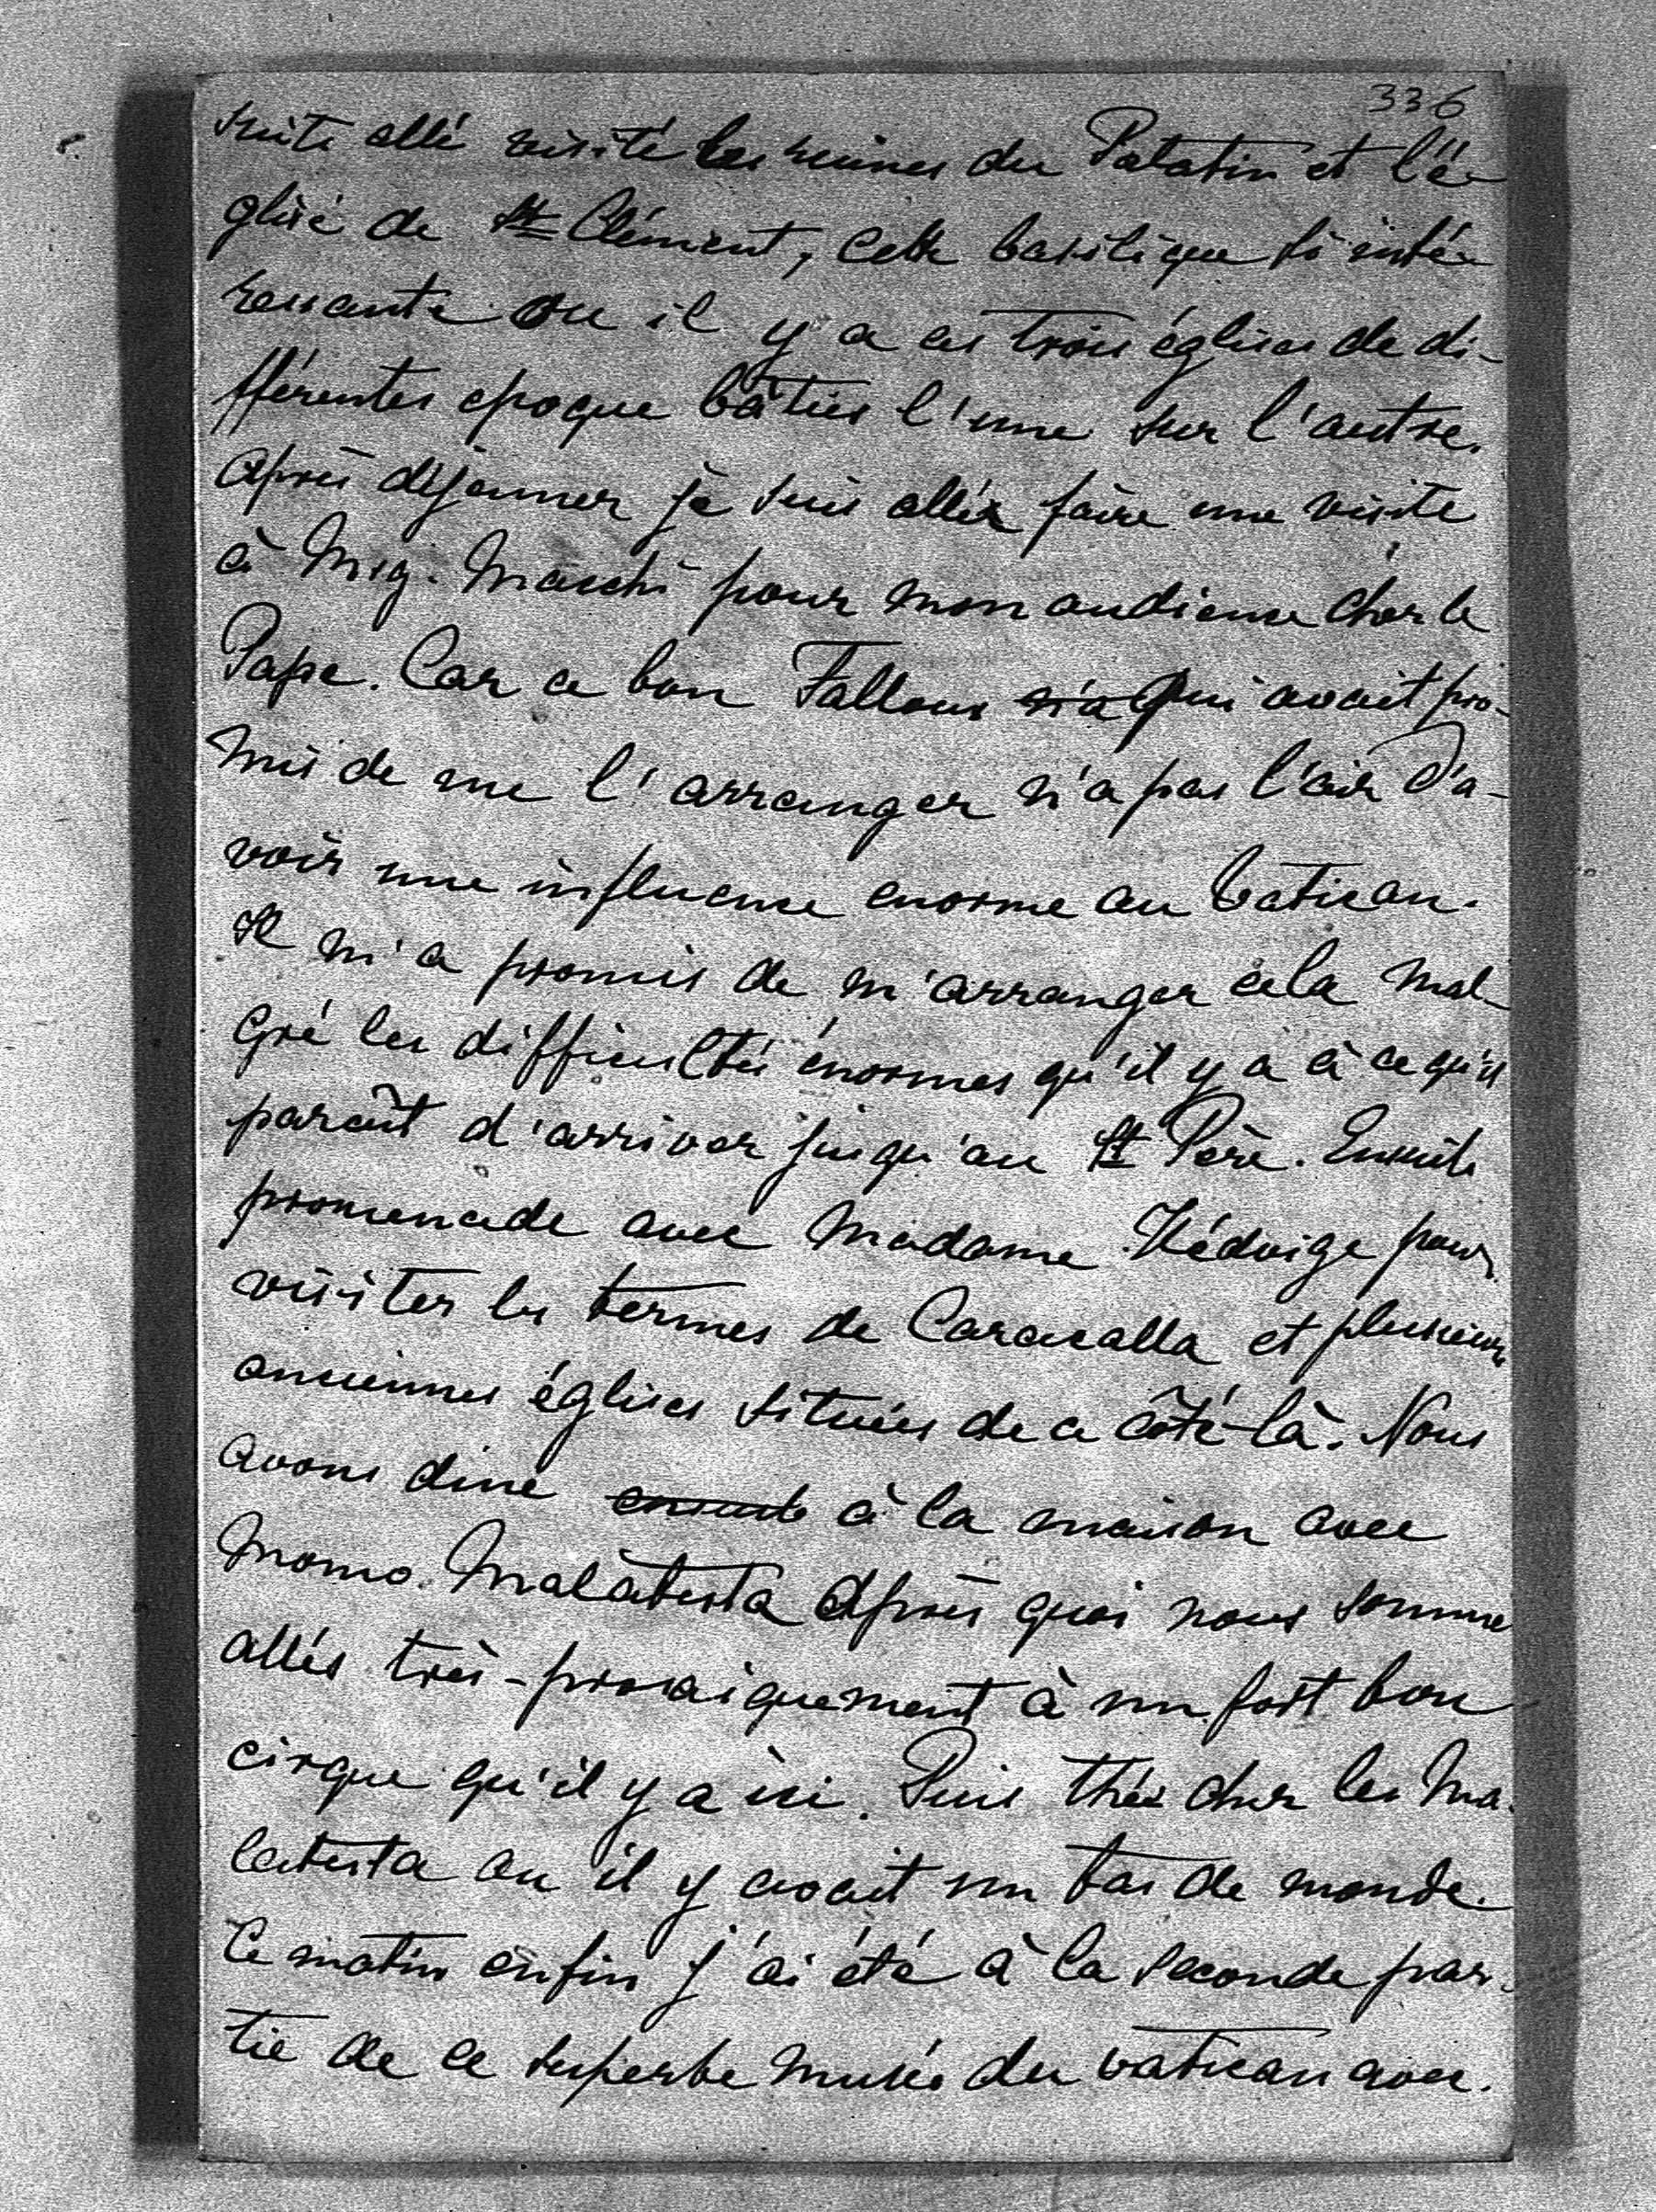 336
suite allé visité les ruines du Palatin et l'é-
glise de St Clément, cette basilique si inté-
ressante ou il y a ces trois églises de di-
fférentes epoque bâties l'une sur l'autre.
Après déjeuner je suis allée faire une visite
à Msg. Macchi pour mon audience chez le
Pape. Car ce bon Falloux n'a qui avait pro-
mis de me l'arranger n'a pas l'air d'a-
voir une influence enorme au Vatican.
Il m'a promis de m'arranger cela mal-
gré les difficultés énormes qu'il y a à ce qu'il
parait d'arriver jusqu'au St Père. Ensuite
promenade avec Madame Hédvige pour
visiter les termes de Caracalla et plusieurs
anciennes églises situées de ce côté-là. Nous
avons dine ensuite à la maison avec
Momo Malatesta Après quoi nous somme
allés très-prosaiquement à un fort bon
cirque qu'il y a ici. Puis thée chez les Ma-
latesta ou il y avait un tas de monde.
Ce matin enfin j'ai été à la seconde par-
tie de ce superbe musée du vatican avec.